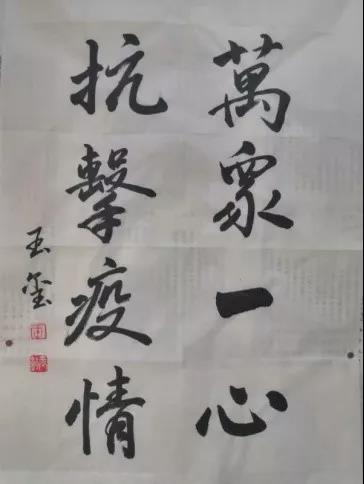 萬眾一心
抗擊疫情
玉玺